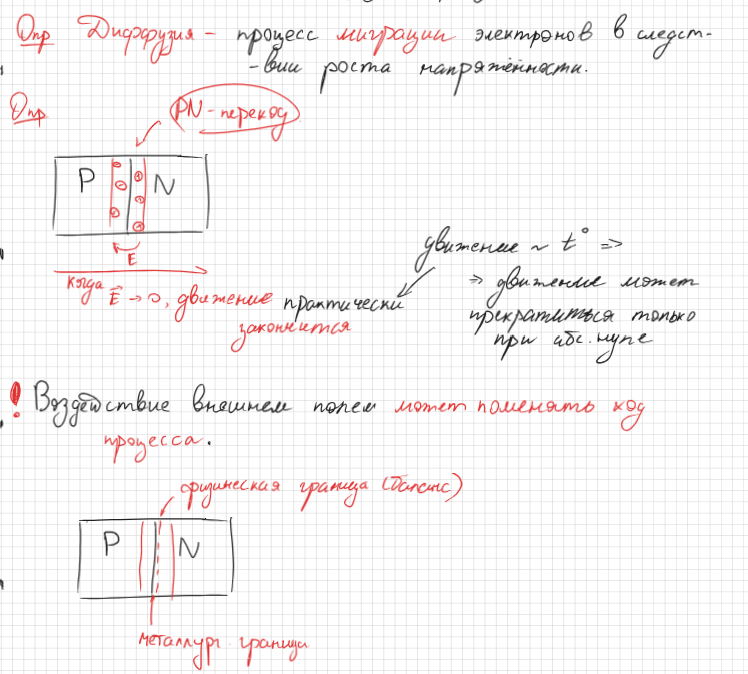 Опр Диффузия – процесс миграции электронов в следст-
-вии роста напряжённости.
Опр PN-переход
P N
E
когда E → 0, движение практически
закончится
движение ~ t° =>
=> движение может
прекратиться только
при абс. нуле
! Воздействие внешнем полем может поменять ход
процесса.
физическая граница (баланс)
P N
металлург. граница